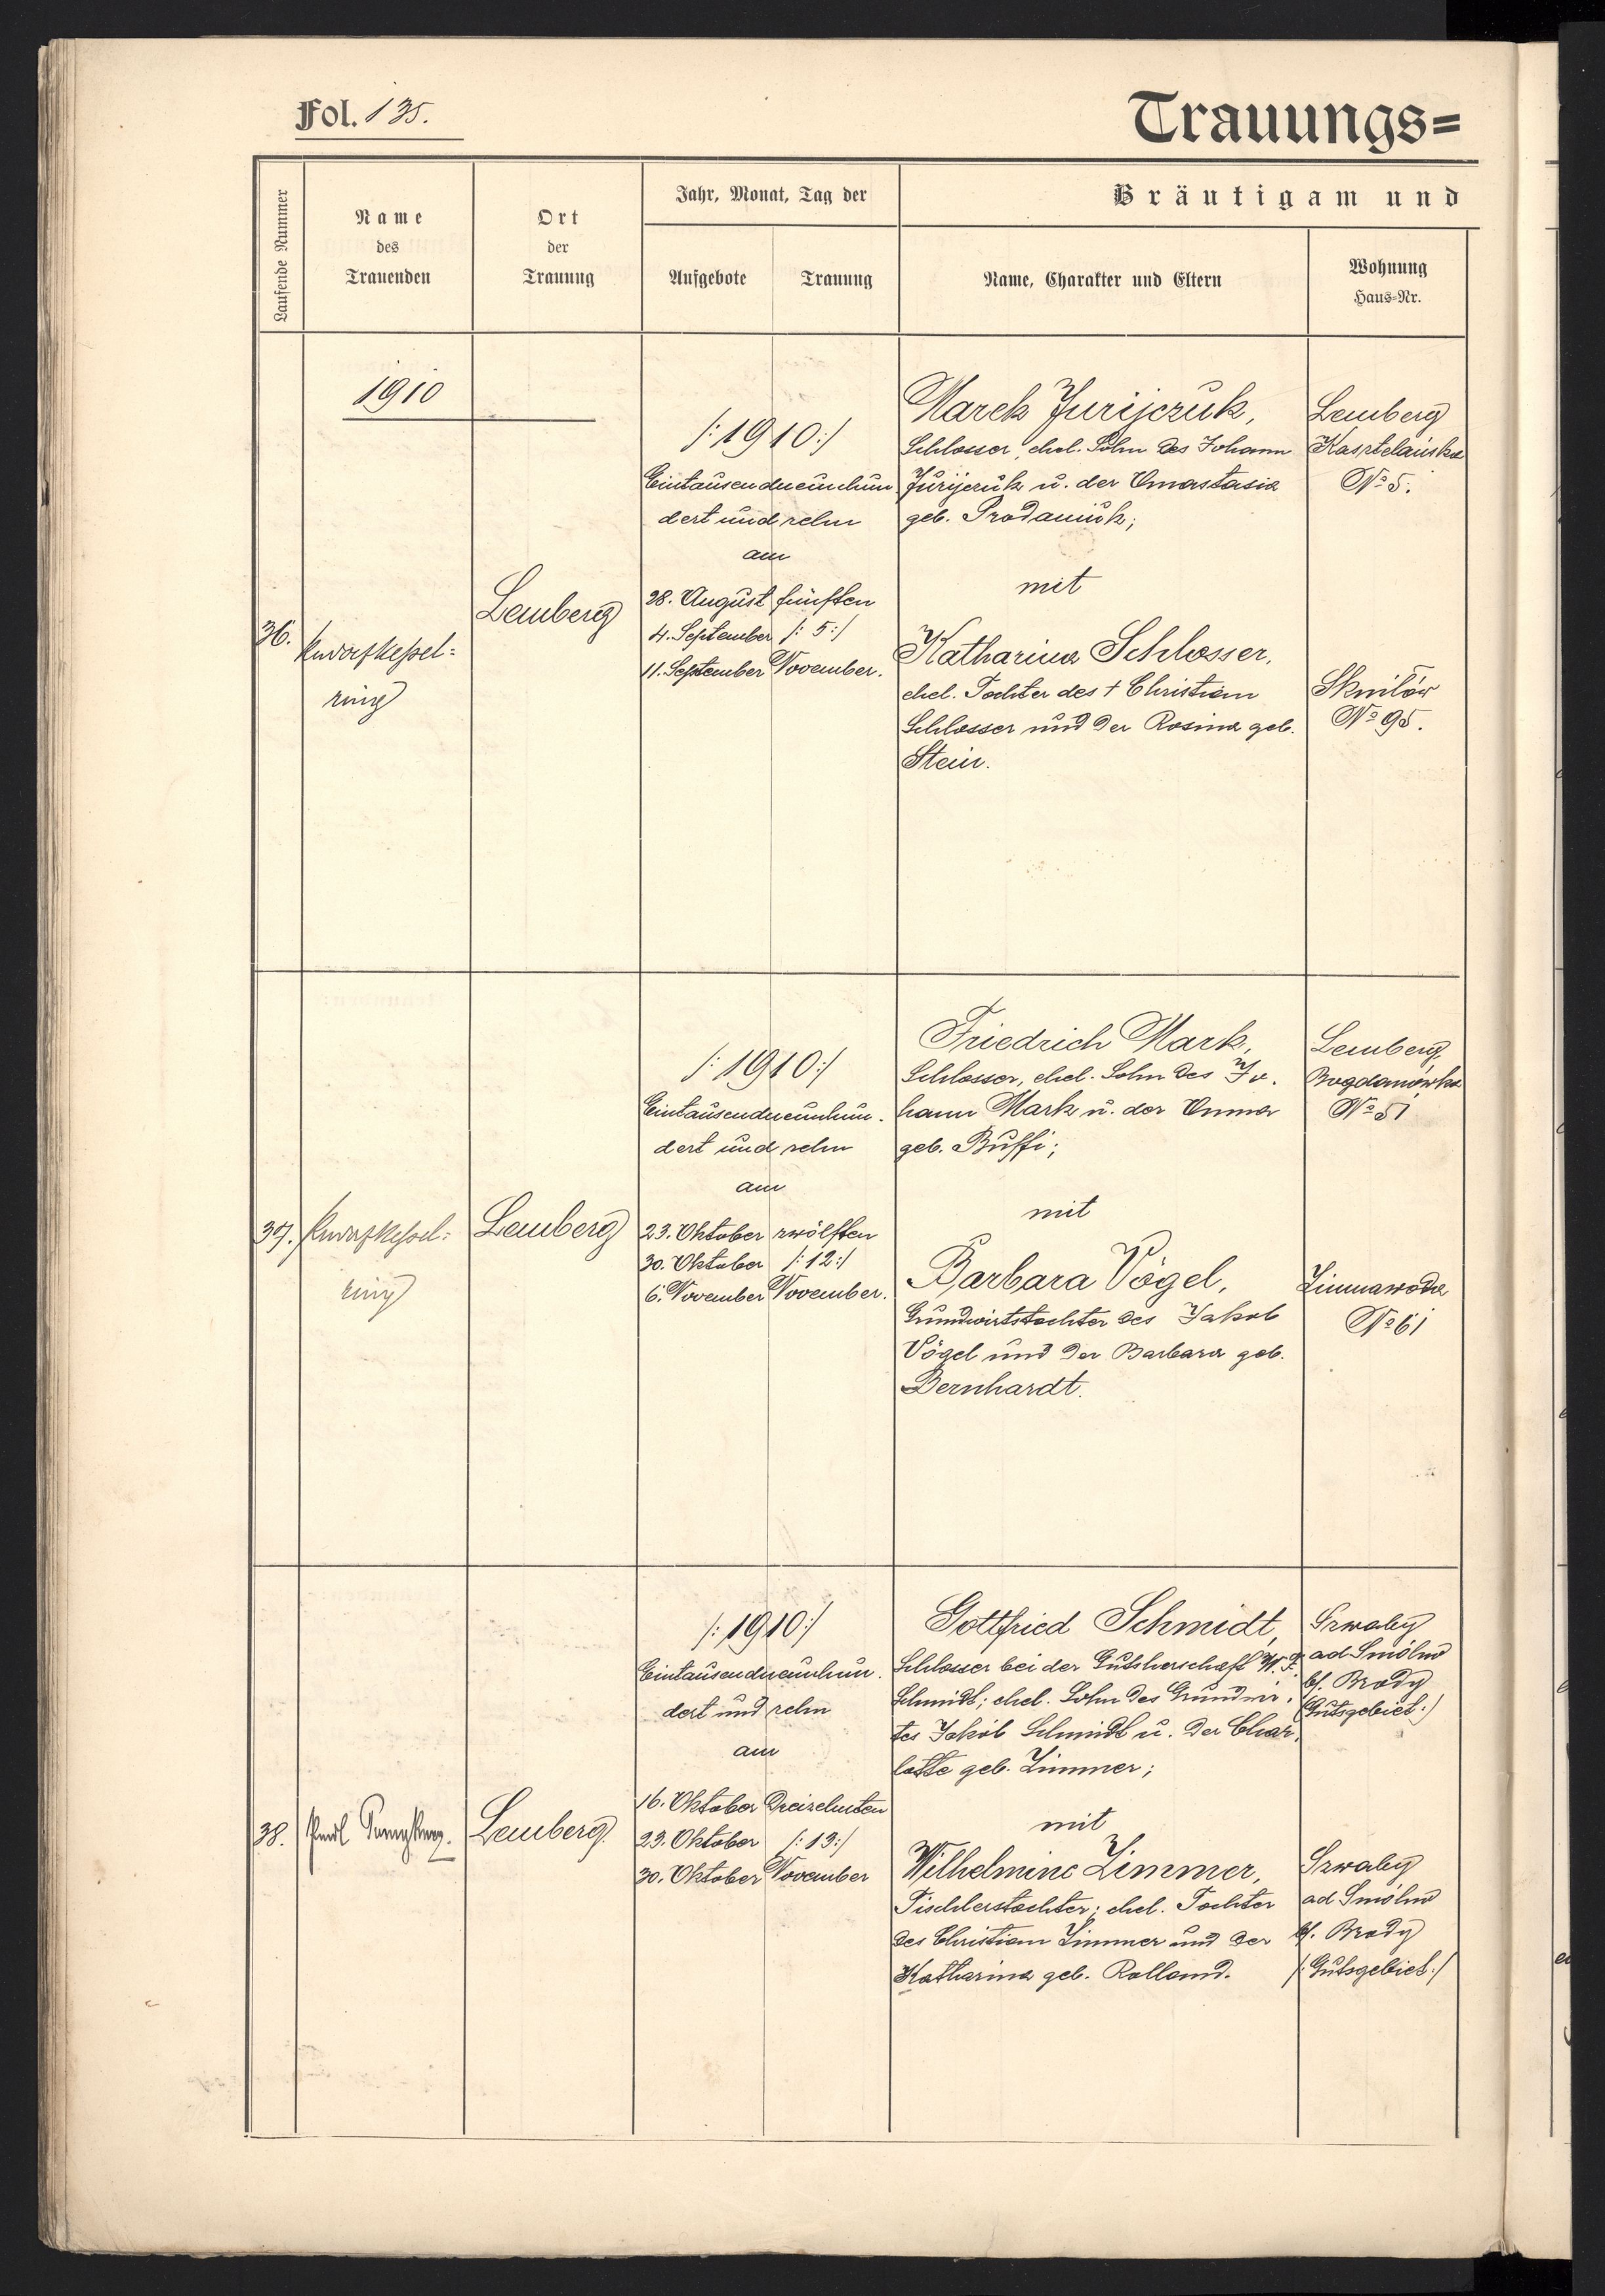 Fol. 135.
Trauungs=
Laufende Nummer
Name
des
Trauenden
Ort
der
Trauung
Jahr, Monat, Tag der
Aufgebote
Trauung
Bräutigam und
Name, Charakter und Eltern
Wohnung
Haus-Nr.
1910
36.
ring
Lemberg
/:1910:/
Eintausendneunhun
dert und zehn
am
28. August fünften
4. September /: 5:/
11. September November.
Marek Jurijczuk,
Schlosser, ehel. Sohn des Johann
Jurijczuk u. der Anastasia
geb. Prodaniuk;
mit
Katharina Schlosser,
ehel. Tochter des † Christian
Schlosser und der Rosina geb.
Stein.
Lemberg
Kasztelańska
No 5.
Sknilów
No 95.
37.
ring
Lemberg
/:1910:/
Eintausendneunhun.
dert und zehn
am
23. Oktober zwölften
30. Oktober /:12:/
6. November November.
Friedrich Mark,
Schlosser, ehel. Sohn des Jo.
hann Mark u. der Anna
geb. Buffi;
mit
Barbara Vögel,
Grundwirtstochter des Jakob
Vögel und der Barbara geb.
Bernhardt.
Lemberg,
Bogdanówka
No 51
Zimnawoda
No 61
38.
Lemberg.
/:1910:/
Eintausendneunhun.
dert und zehn
am
16. Oktober Dreizehnten
23. Oktober /:13:/
30. Oktober November
Gottfried Schmidt,
Schlosser bei der Gutsherschaft W. F.
Schmidt; ehel. Sohn des Grundwir.
tes Jakob Schmidt u. der Char.
lotte geb. Zimmer;
mit
Wilhelmine Zimmer,
Tischlerstochter; ehel. Tochter
des Christian Zimmer und der
Katharina geb. Rolland.
Szwaby
ad Smólno
bf. Brody
(Gutsgebiet:)
Szwaby
ad Smólno
bf. Brody
/:Gutsgebiet:/